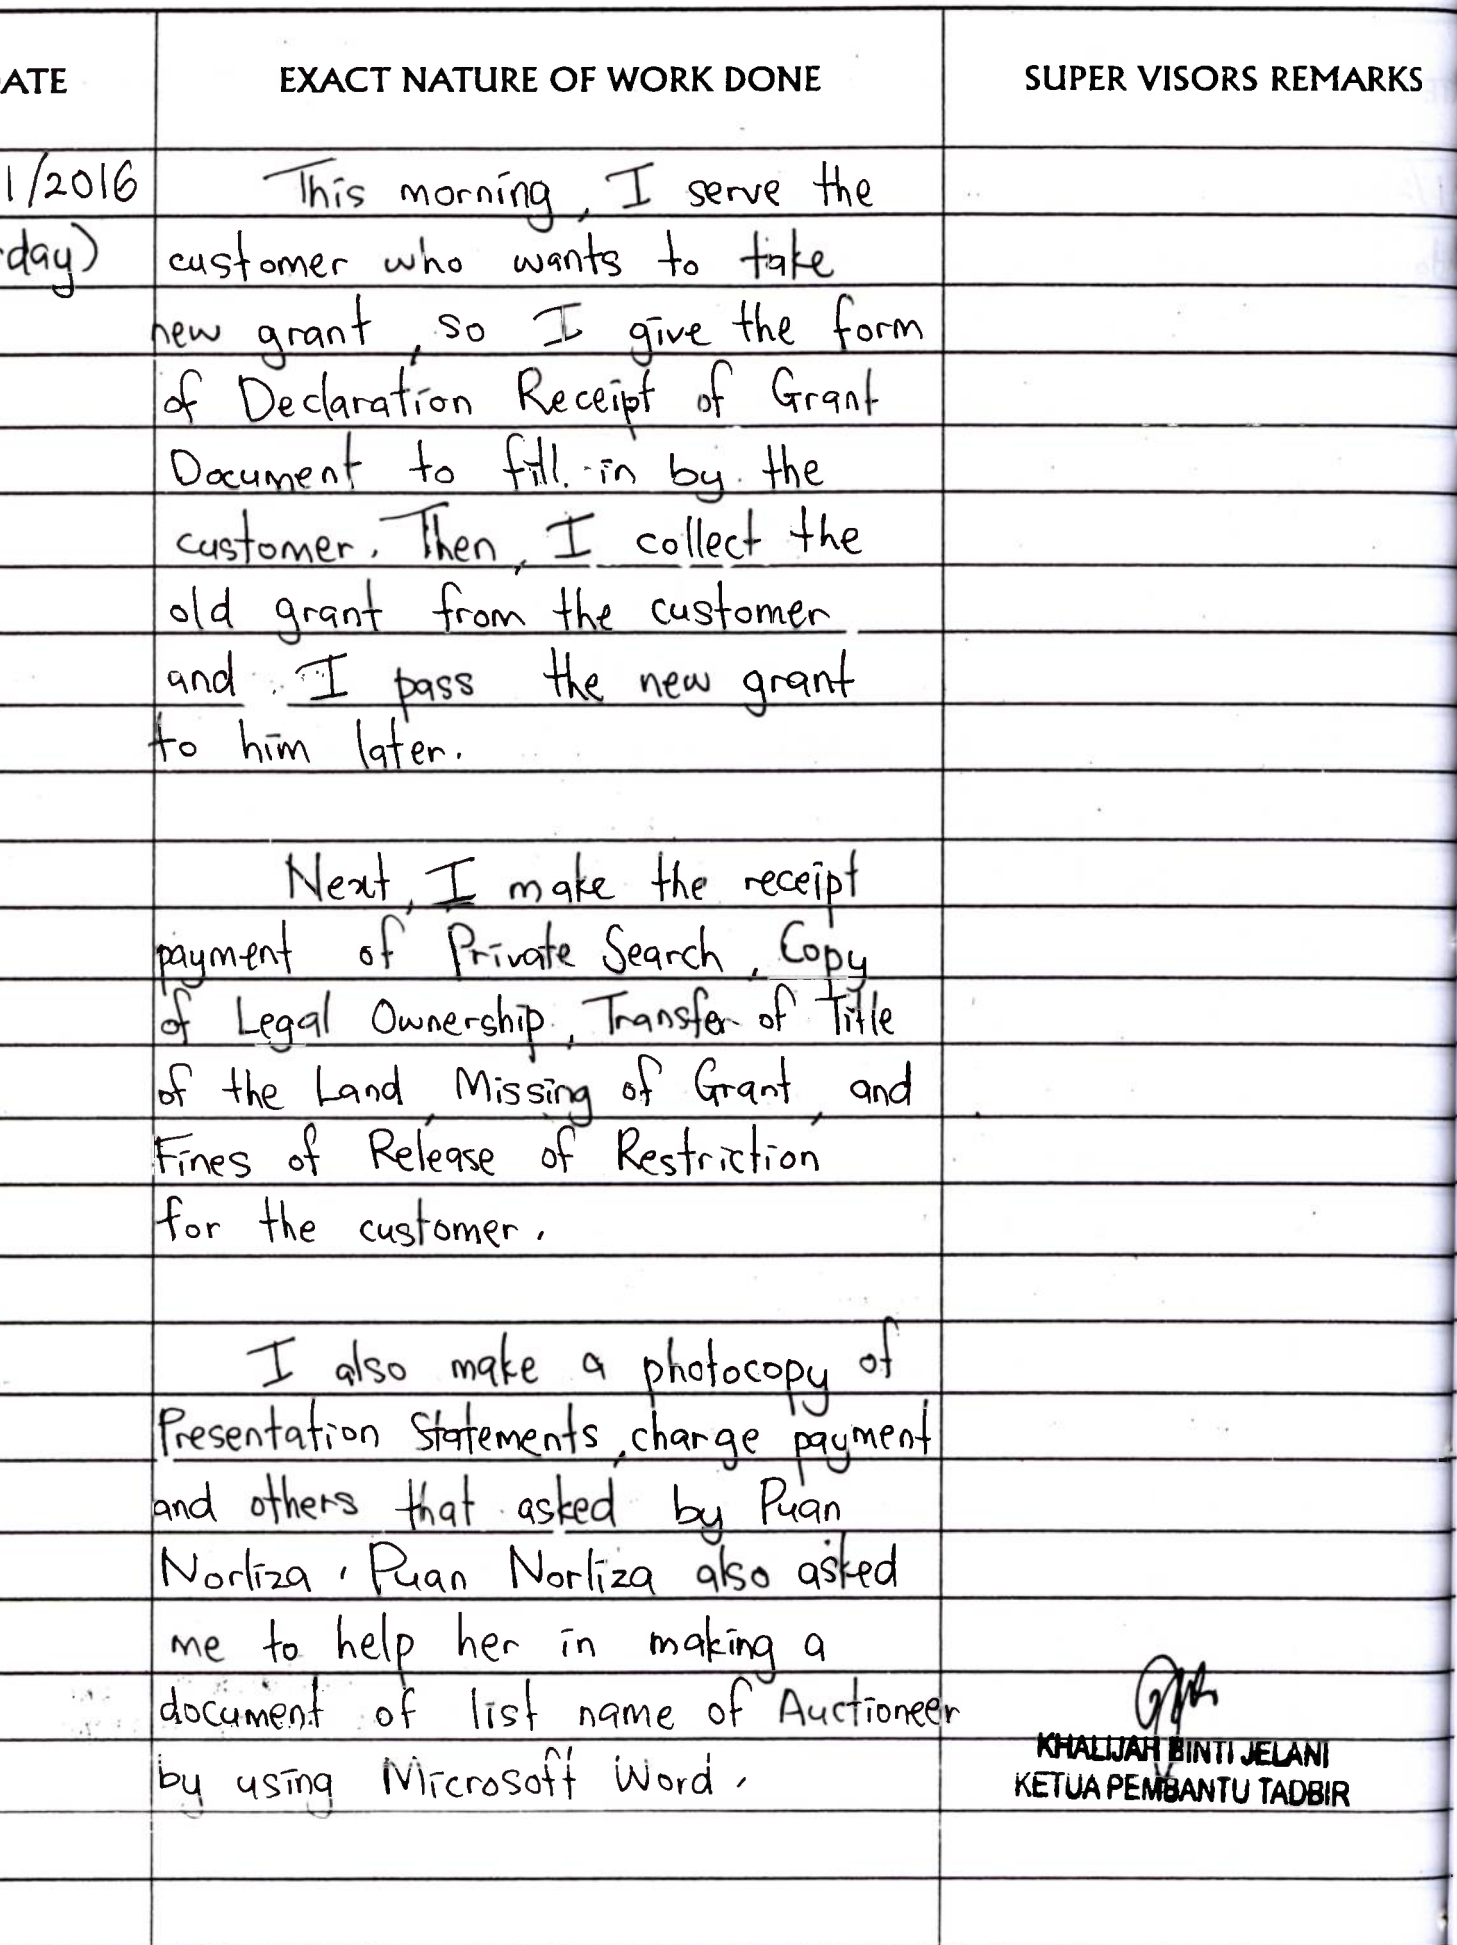 ATE EXACT NATURE OF WORK DONE SUPER VISORS REMARKS
1/2016 This morning, I serve the
day) customer who wants to take
new grant, so I give the form
of Declaration Receipt of Grant
Document to fill in by the
customer. Then, I collect the
old grant from the customer
and I pass the new grant
to him later.
Next, I make the receipt
payment of Private Search, Copy
of Legal Ownership, Transfer of Title
of the Land, Missing of Grant, and
Fines of Release of Restriction
for the customer.
I also make a photocopy of
Presentation Statements, charge payment
and others that asked by Puan
Norliza. Puan Norliza also asked
me to help her in making a
document of list name of Auctioneer
by using Microsoft Word.
KHALIJAH BINTI JELANI
KETUA PEMBANTU TADBIR